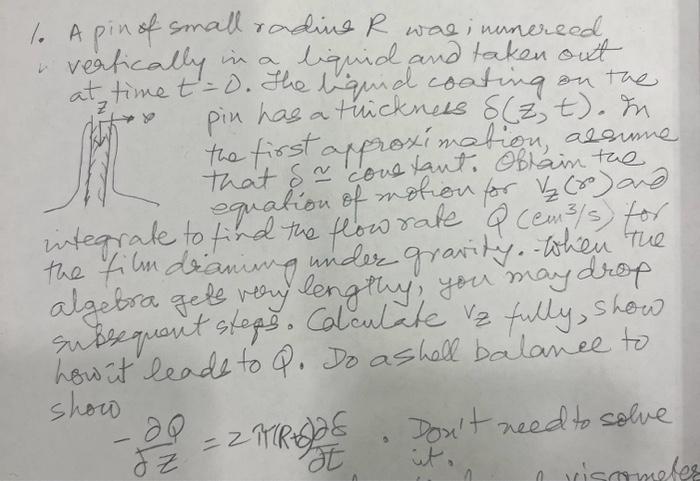 1. A pin of small radius R was immersed
vertically in a liquid and taken out
at time t = 0. The liquid coating on the
z
r
pin has a thickness δ(z, t). In
the first approximation, assume
that δ ≃ constant. Obtain the
equation of motion for V_z(r) and
integrate to find the flow rate Q (cm³/s) for
the film draining under gravity. When the
algebra gets very lengthy, you may drop
subsequent steps. Calculate v_z fully, show
how it leads to Q. Do a shell balance to
show
-∂Q/∂z = 2π(R+δ)∂δ/∂t . Don't need to solve
it.
viscometer